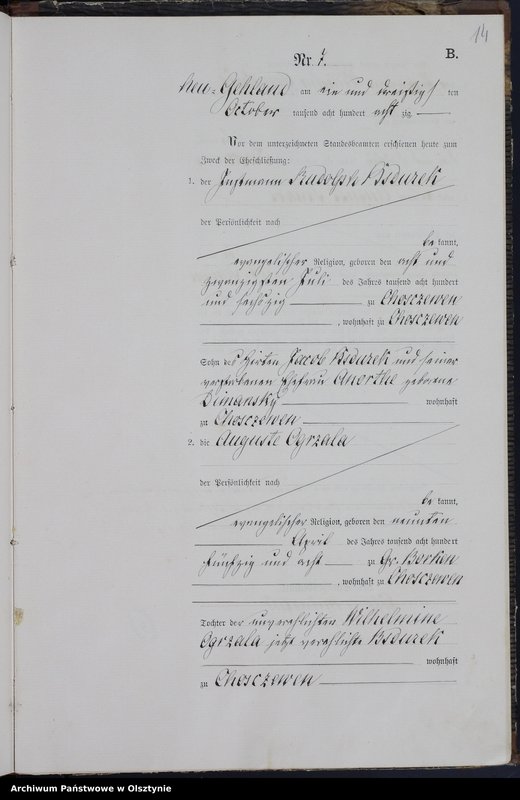 14
B.
Nr. 7.
Neu-Gehland am ein und dreißig ten
October tausend acht hundert acht zig
Vor dem unterzeichneten Standesbeamten erschienen heute zum
Zweck der Eheschließung:
1. der Instmann Rudolph Bsdurek
der Persönlichkeit nach
be kannt,
evangelischer Religion, geboren den acht und
zwanzigsten Juli des Jahres tausend acht hundert
und sechszig zu Choszewen
, wohnhaft zu Choszewen
Sohn des Hirten Jacob Bsdurek und seiner
verstorbenen Ehefrau Anorthe geborene
Dimansky wohnhaft
zu Choszewen
2. die Auguste Ogrzala
der Persönlichkeit nach
be kannt,
evangelischer Religion, geboren den neunten
April des Jahres tausend acht hundert
fünfzig und acht zu Gr. Borken
, wohnhaft zu Choszewen
Tochter der unverehlichten Wilhelmine
Ogrzala jetzt verehlichte Bsdurek
wohnhaft
zu Choszewen
Archiwum Państwowe w Olsztynie